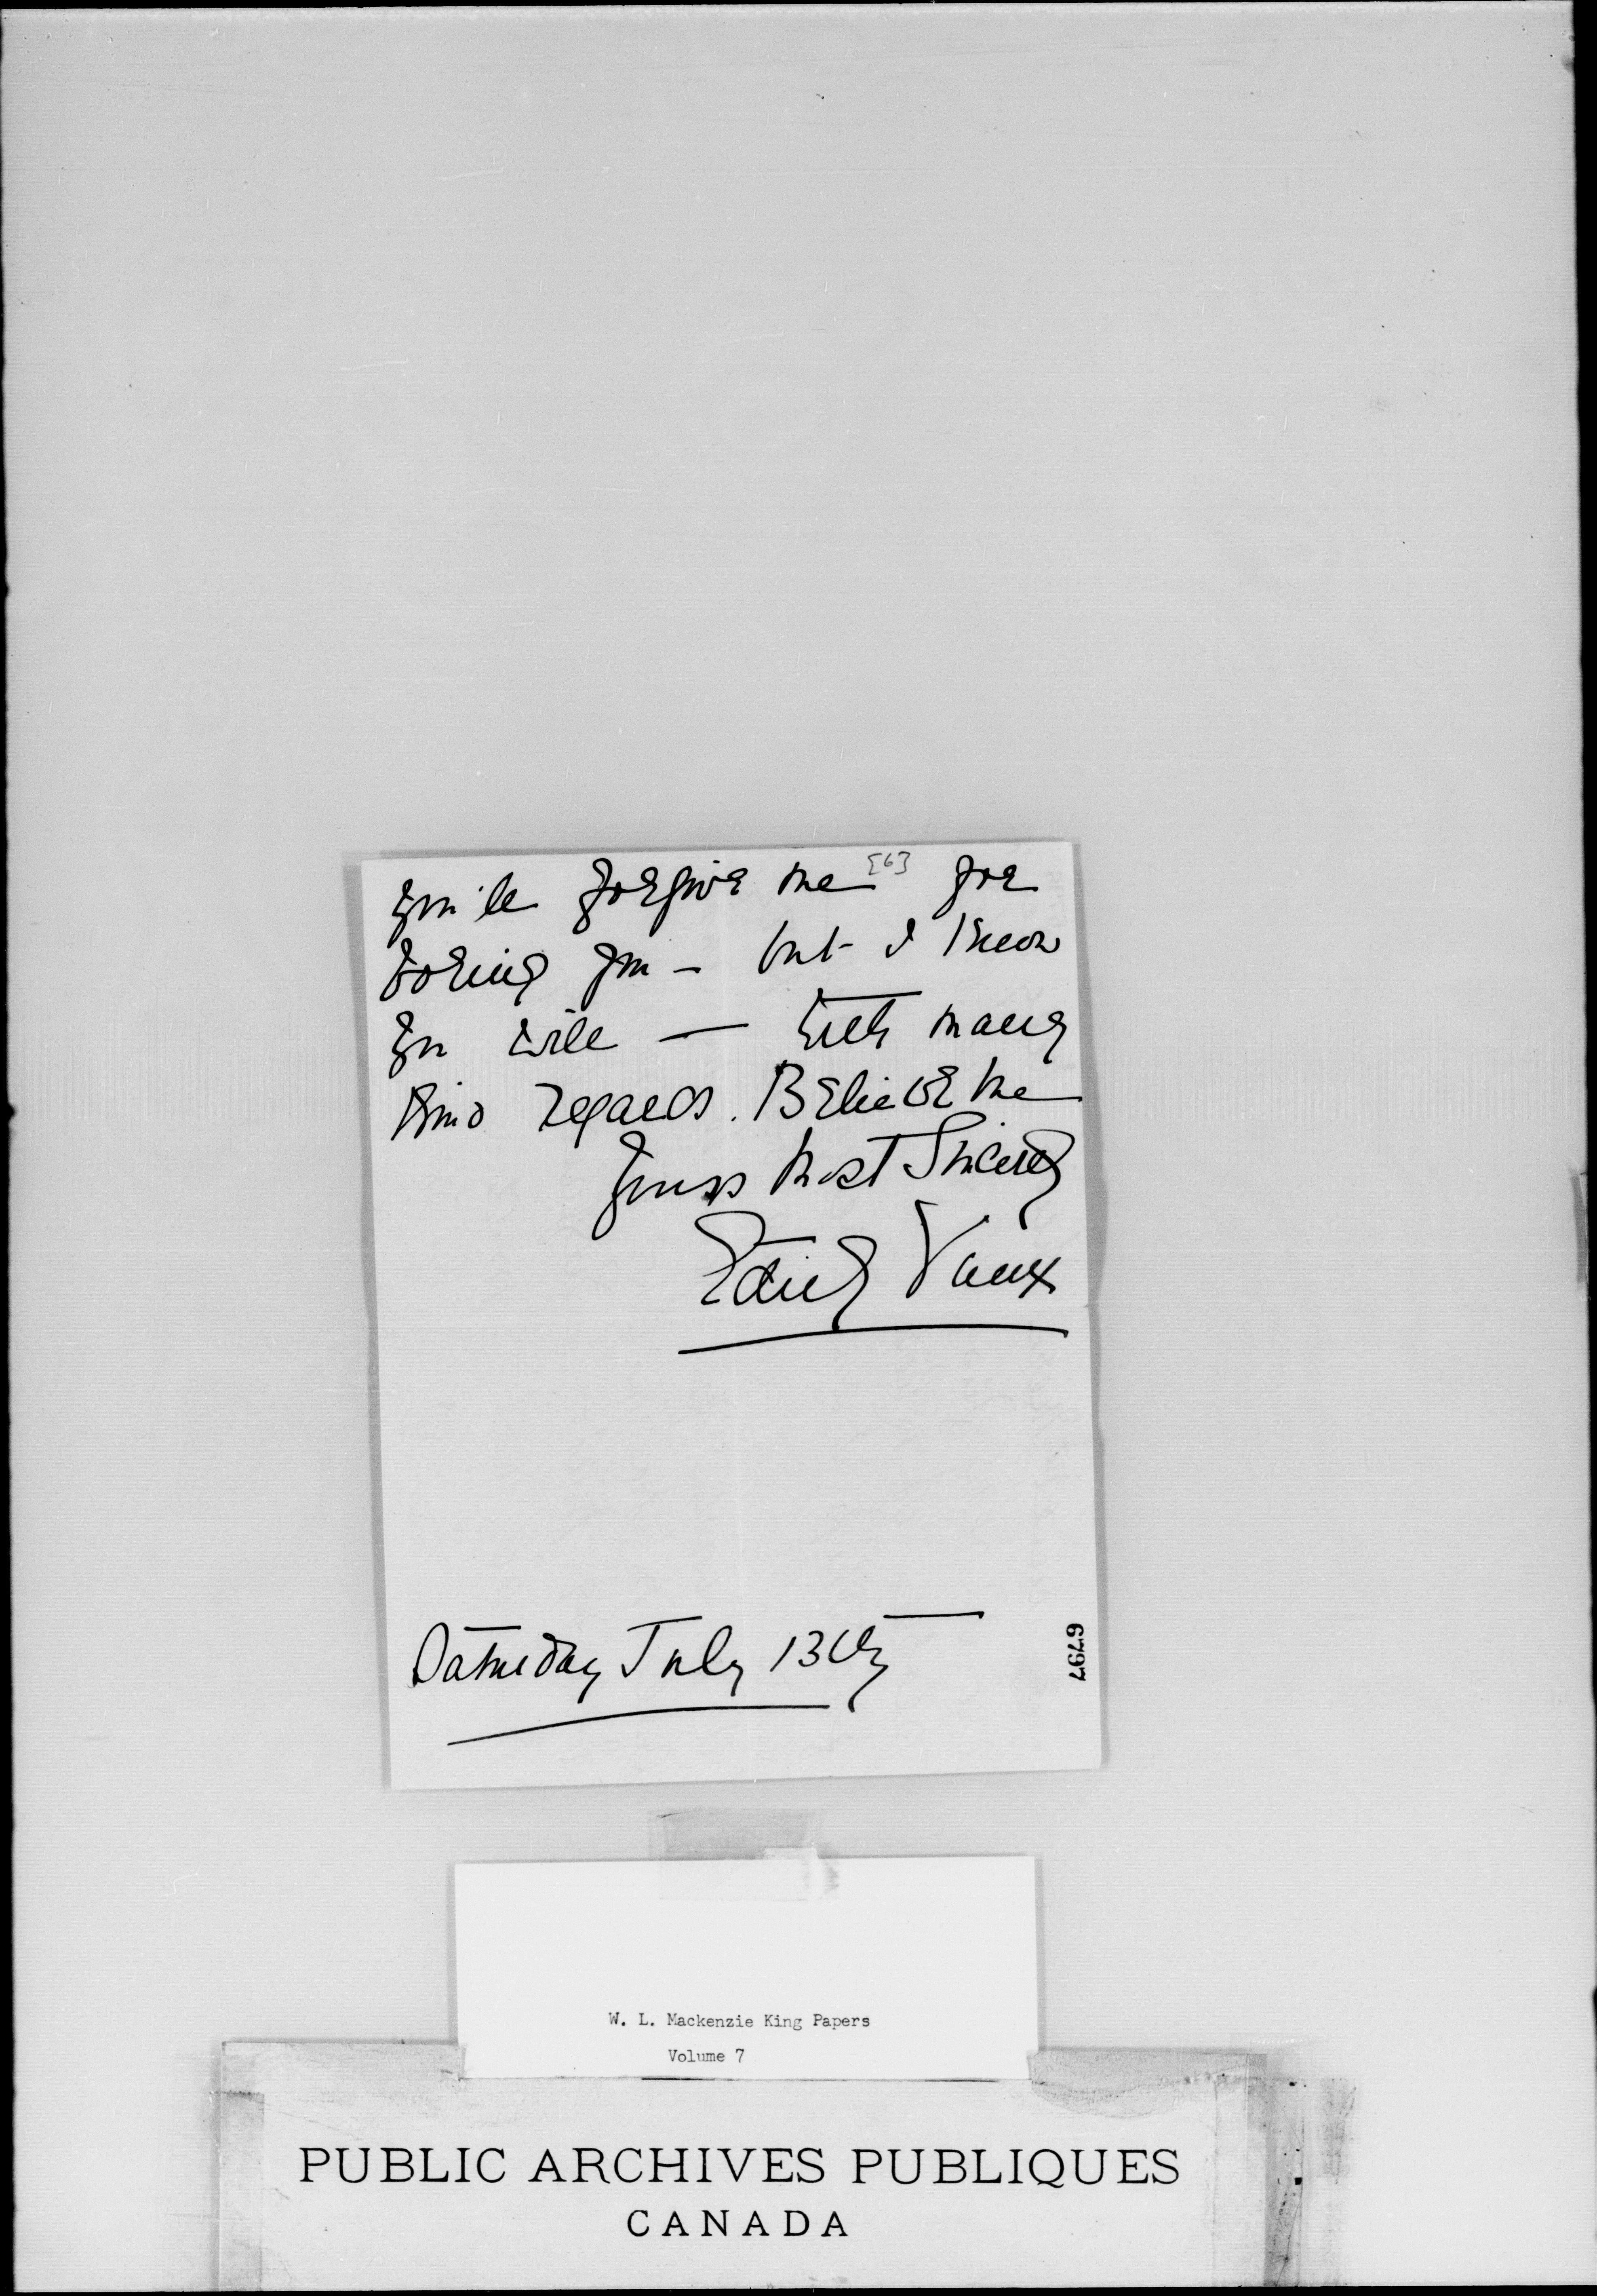 you'll forgive me [6] for
boring you – but I know
you will — With many
kind regards. Believe me
yours most Sincerely
Edith Vaux
Saturday July 13th
6797
W. L. Mackenzie King Papers
Volume 7
PUBLIC ARCHIVES PUBLIQUES
CANADA